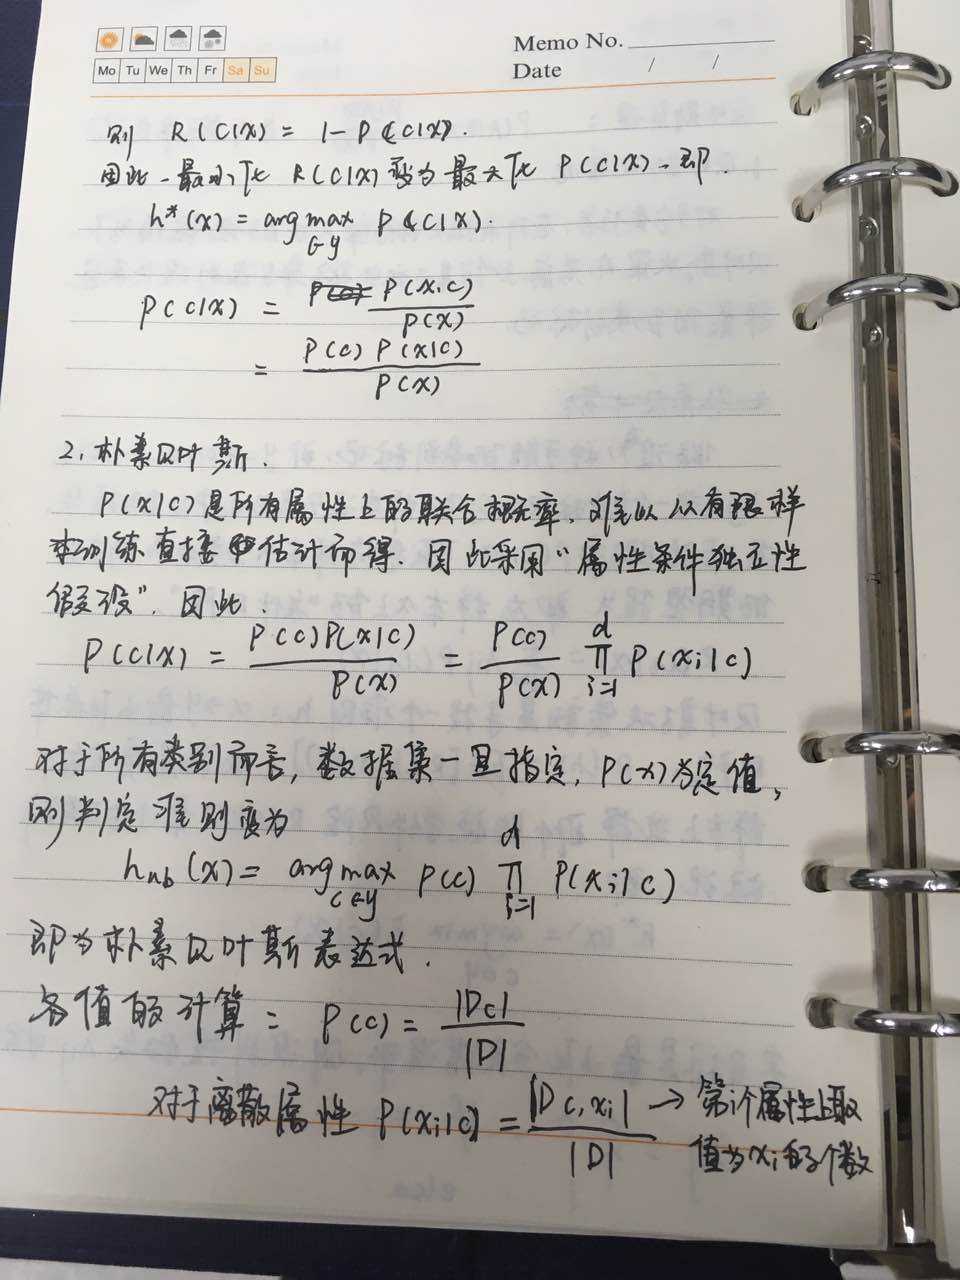 Memo No.
Mo Tu We Th Fr Sa Su
Date / /
则 R(c|x) = 1 - P(c|x).
因此, 最小化 R(c|x) 变为最大化 P(c|x), 即
h*(x) = arg max P(c|x).
∈ y
P(c|x) = P(x,c) / P(x)
= P(c) P(x|c) / P(x)
2. 朴素贝叶斯.
P(x|c)是所有属性上的联合概率, 难以从有限样
本训练直接估计而得. 因此采用“属性条件独立性
假设”. 因此:
P(c|x) = P(c)P(x|c) / P(x) = P(c) / P(x) ∏_{i=1}^{d} P(xi|c)
对于所有类别而言, 数据集一旦指定, P(x)为定值,
则判定准则变为
h_nb(x) = arg max_{c∈y} P(c) ∏_{i=1}^{d} P(xi|c)
即为朴素贝叶斯表达式.
各值的计算: P(c) = |Dc| / |D|
对于离散属性 P(xi|c) = |Dc,xi| / |D| → 第i个属性上取
值为xi的个数